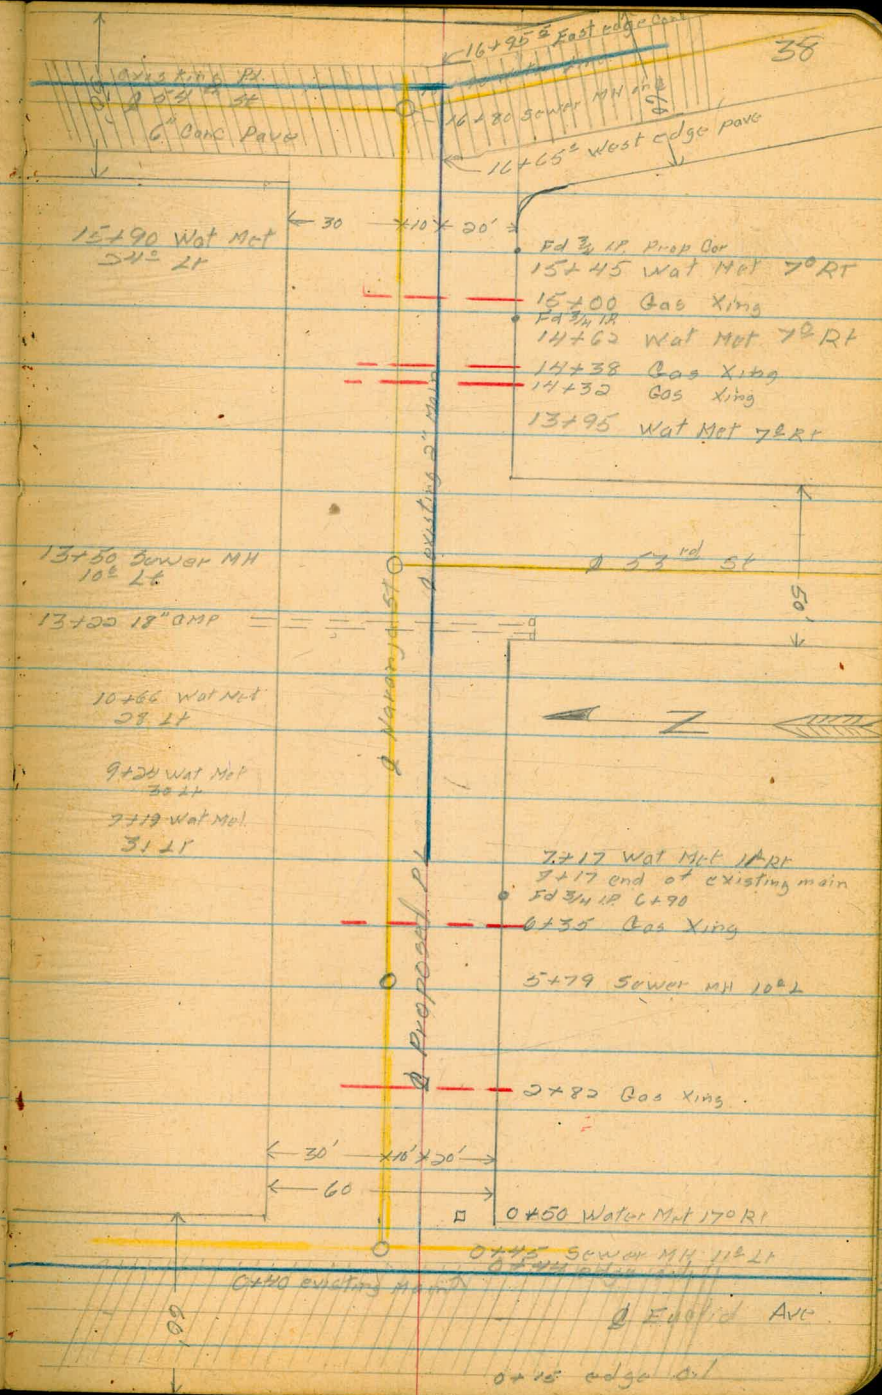 38
16+95⁰ East edge Conc
existing PL
℄ 54th St
50'
6" Conc Pave
16+80 Sewer MH
60'
16+65⁰ West edge pave
30 10' 20'
15+90 Wat Met
24⁰ Lt
Fd 3/4 IP Prop Cor
15+45 Wat Met 7⁰ Rt
15+00 Gas Xing
Fd 3/4 IP
14+62 Wat Met 7⁰ Rt
14+38 Gas Xing
14+32 Gas Xing
13+95 Wat Met 7⁰ Rt
℄ existing 2" Main
13+50 Sewer MH
10⁰ Lt
℄ 53rd St
50'
13+22 18" CMP
℄ Naranja St
10+66 Wat Met
28 Lt
N
9+24 Wat Met
30 Lt
7+19 Wat Met
31 Lt
7+17 Wat Met Rt
7+17 end of existing main
Fd 3/4 IP 6+90
6+35 Gas Xing
℄ Proposed PL
5+79 Sewer MH 10⁰ L
2+82 Gas Xing
30' 10' 20'
60
0+50 Water Met 17⁰ Rt
0+45 Sewer MH 11⁰ Lt
0+44 edge oil
0+40 existing main
60'
℄ Euclid Ave
0+15 edge Oil